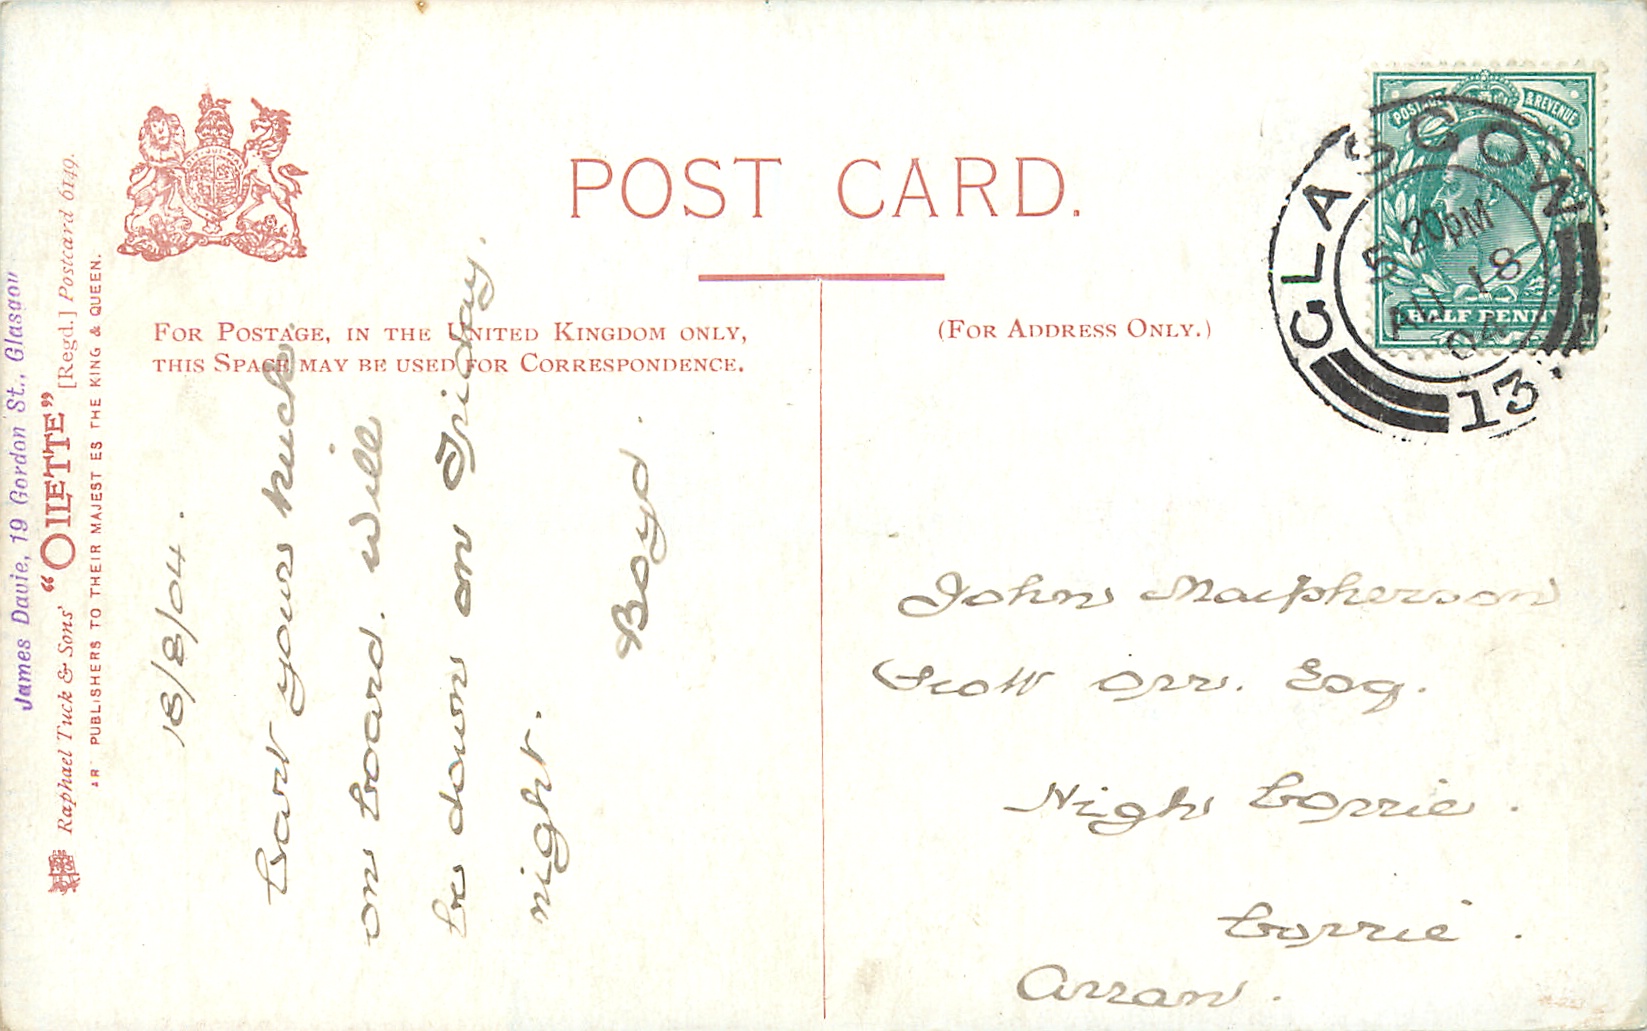 James Davie, 19 Gordon St., Glasgow
Raphael Tuck & Sons' "OILETTE" [Regd.] Postcard 6149.
AR PUBLISHERS TO THEIR MAJEST ES THE KING & QUEEN.
POST CARD.
FOR POSTAGE, IN THE UNITED KINGDOM ONLY,
THIS SPACE MAY BE USED FOR CORRESPONDENCE.
(FOR ADDRESS ONLY.)
POSTAGE & REVENUE
HALF PENNY
GLASGOW
5 20PM
AU 18
04
13
18/8/04.
Cart your
on board. Will
be down on Friday.
night.
Boyd.
John Macpherson
Scott Orr. Esq.
High Corrie.
Corrie.
Arran.